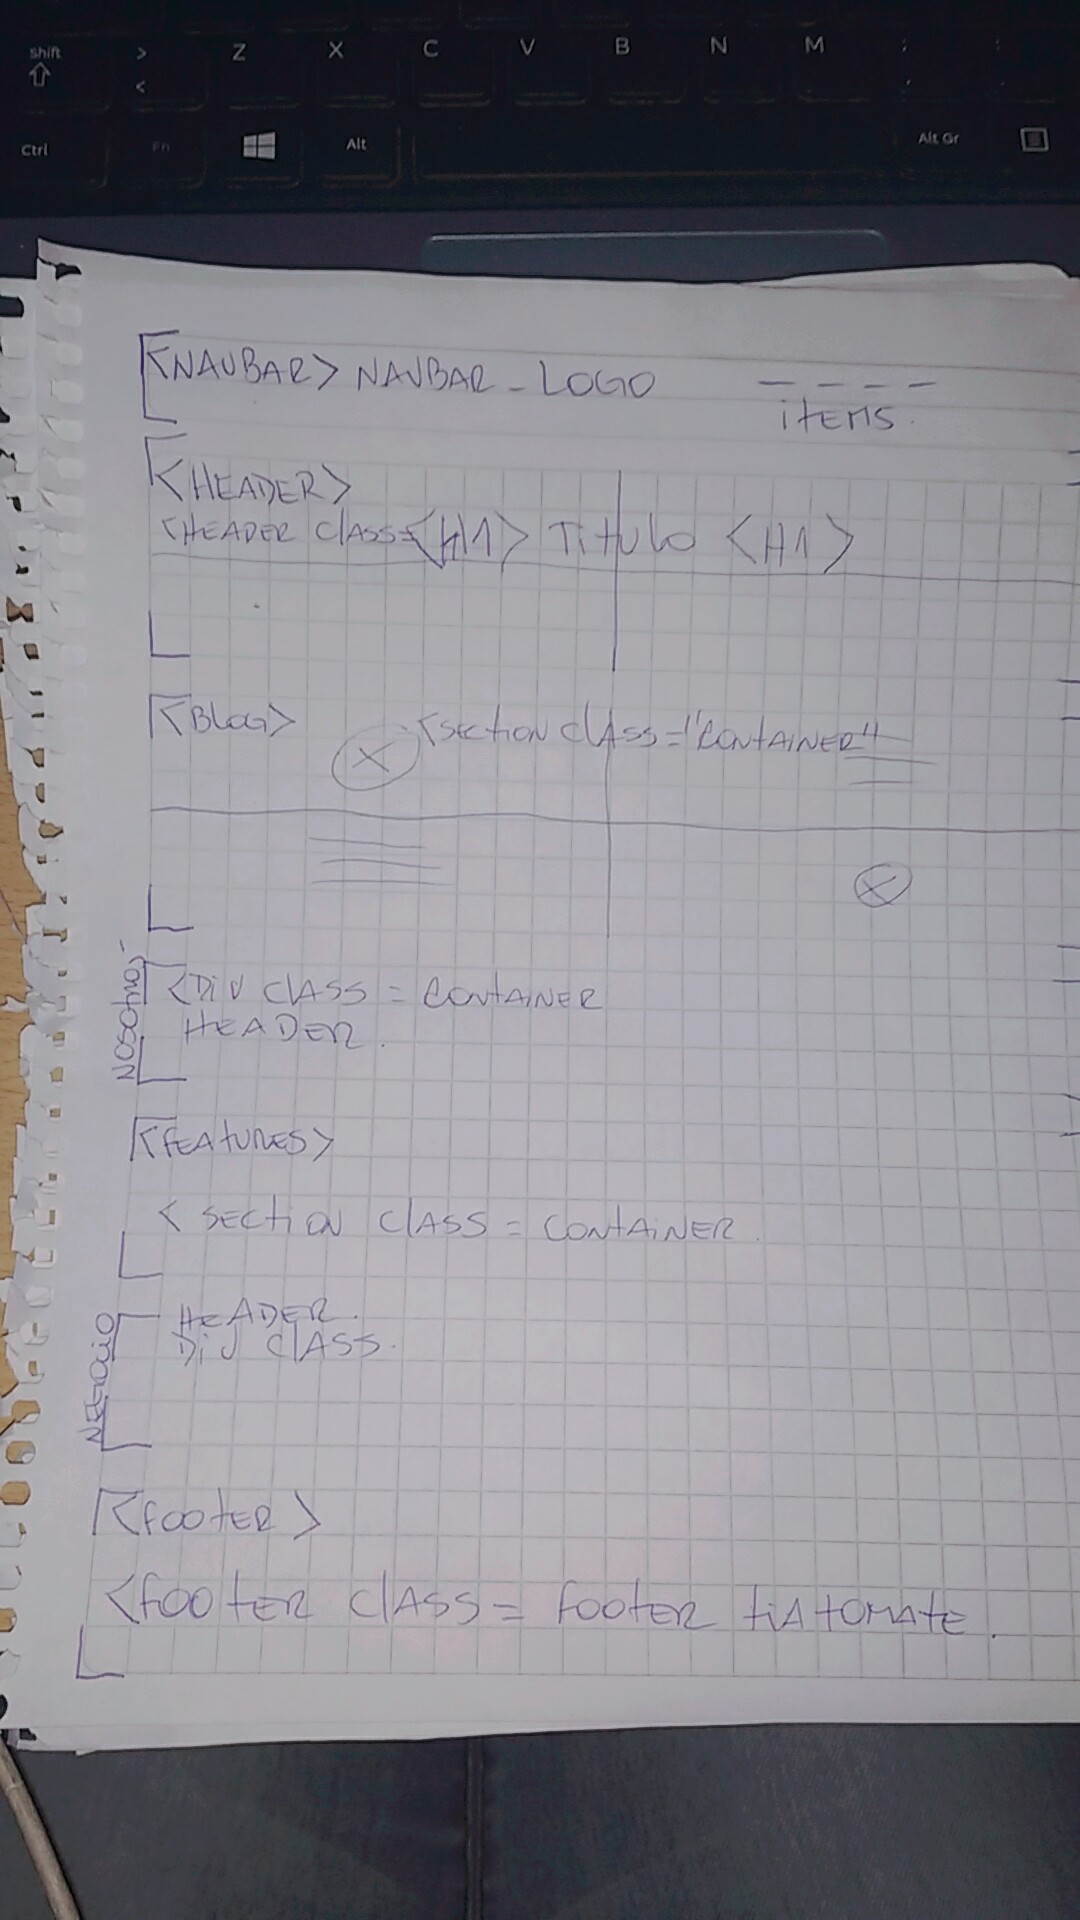 Shift
>
<
Z
X
C
V
B
N
M
;
,
:
.
Ctrl
Fn
Alt
Alt Gr
<NAVBAR> NAVBAR - LOGO
items.
<HEADER>
<HEADER Class=<H1> Titulo <H1>
<Blog>
X
<section class="CONTAINER"
X
NOSOTROS
<Div class = CONTAINER
HEADER.
<FEATURES>
< SECTION CLASS = CONTAINER.
NEGOCIO
HEADER.
Div class.
<footer>
<footer class = footer tiA tomate.